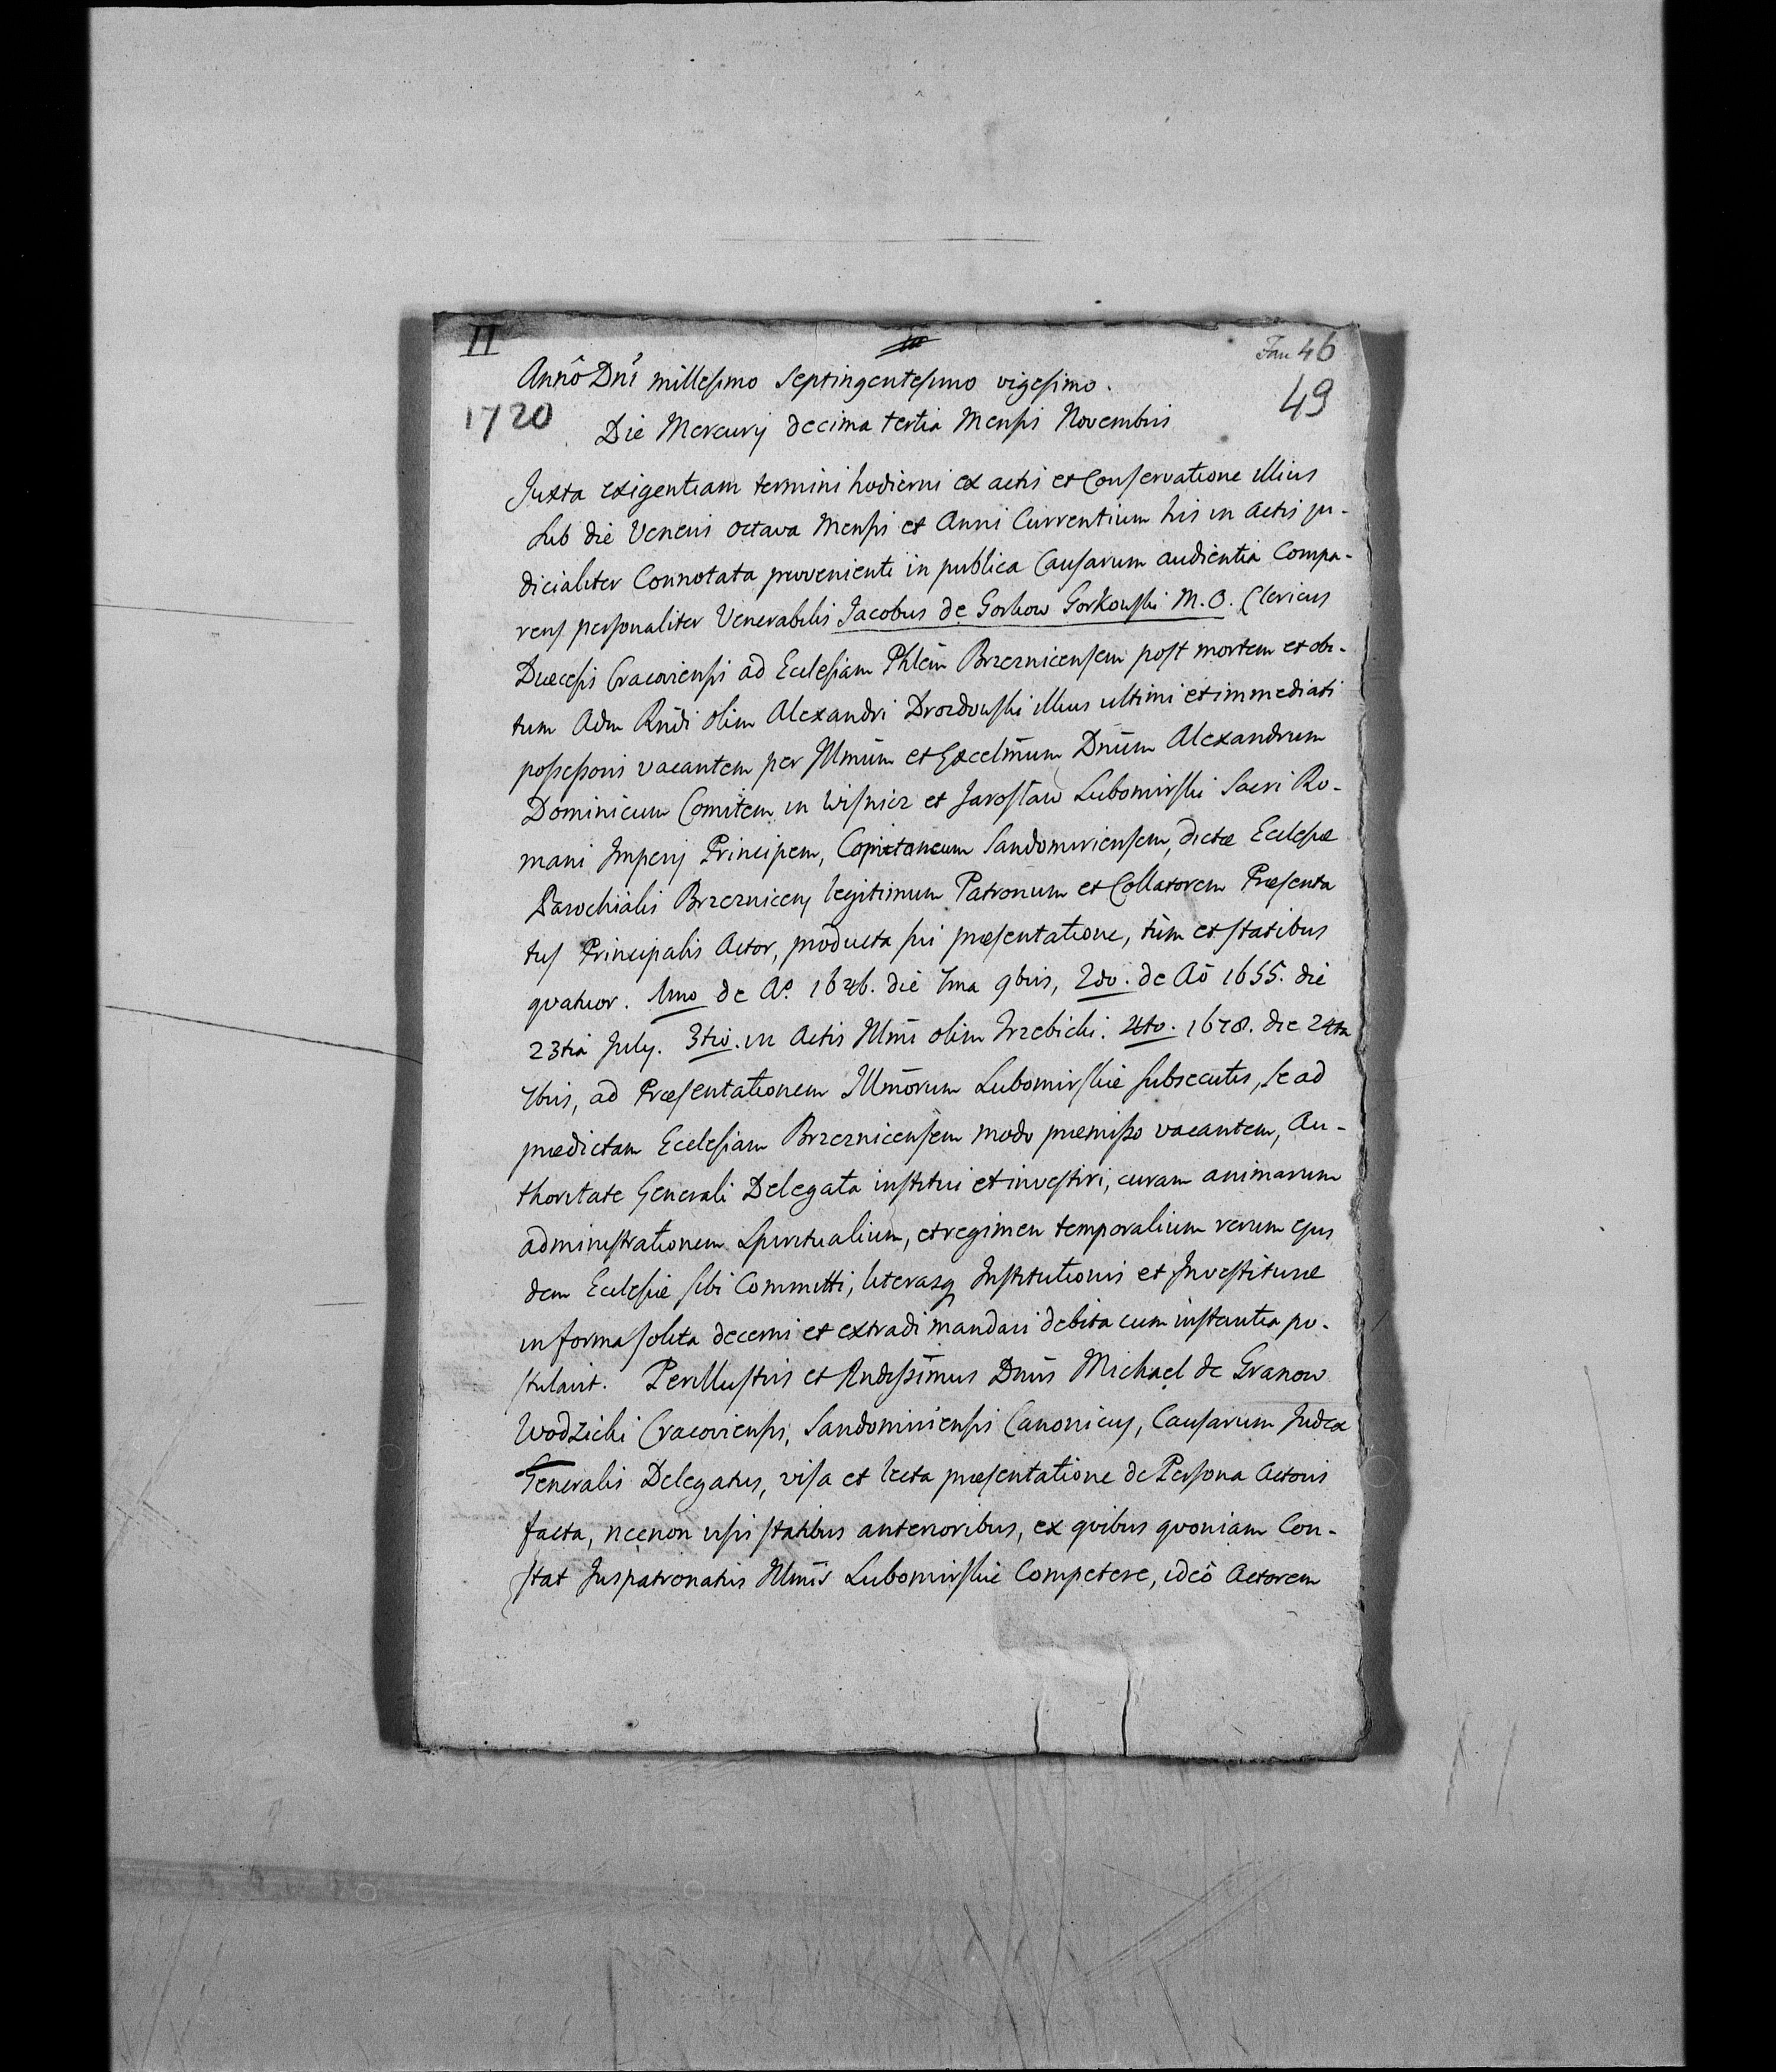 II
Jan 46
Annô Dnî millesimo Septingentesimo vigesimo.
49
1720
Die Mercurij decima tertia Mensis Novembris
Juxta exigentiam termini hodierni ex actis et Conservatione illius
Sub die Veneris octava Mensis et Anni Currentium his in actis ju-
dicialiter Connotata provenienti in publica Causarum audientia Compa-
rens personaliter Venerabilis Jacobus de Gorkow Gorkowski M. O. Clericus
Diæcesis Cracoviensis ad Ecclesiam Phlem Brzeznicensem post mortem et obi-
tum Adm Rndi olim Alexandri Drozdowski illius ultimi et immediati
possessoris vacantem per Illmum et Excellmum Dnum Alexandrum
Dominicum Comitem in Wisnicz et Jaroslaw Lubomirski Sacri Ro-
mani Imperij Principem, Capitaneum Sandomiriensem, dictæ Ecclesiæ
Parochialis Brzeznicens legitimum Patronum et Collatorem Præsenta
tus Principalis Actor, producta sui præsentatione, tum et statibus
quatuor. 1mo de Ao. 1646. die 7ma 9bris, 2do. de Aô 1655. die
23tia July. 3tio. in Actis Illmi olim Trzebicki. 4to. 1678. die 24ta
7bris, ad Præsentationem Illmorum Lubomirskie subsecutis, se ad
prædictam Ecclesiam Brzeznicensem modo præmisso vacantem, Au-
thoritate Generali Delegata institui et investiri, curam animarum
administrationem Spiritualium, et regimen temporalium rerum ejus
dem Ecclesiæ sibi Committi, literasq Institutionis et Investituræ
in forma solita decerni et extradi mandari debita cum instantia po-
stulavit. Perillustris et Rndissimus Dnus Michael de Granow
Wodzicki Cracoviensis, Sandomiriensis Canonicus, Causarum Judex
Generalis Delegatus, visa et lecta præsentatione de Persona Actoris
facta, necnon visis statibus anterioribus, ex quibus quoniam Con-
stat Juspatronatus Illmis Lubomirskie Competere, ideô Actorem